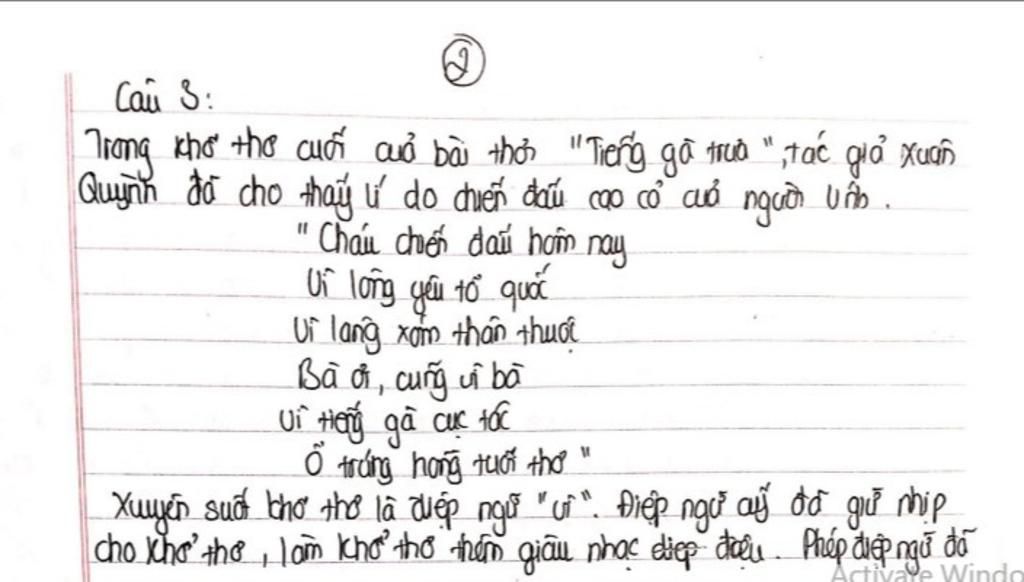 2
Câu 3:
Trong khổ thơ cuối của bài thơ "Tiếng gà trưa", tác giả Xuân
Quỳnh đã cho thấy lí do chiến đấu cao cả của người lính.
"Cháu chiến đấu hôm nay
Vì lòng yêu tổ quốc
Vì làng xóm thân thuộc
Bà ơi, cũng vì bà
Vì tiếng gà cục tác
Ổ trứng hồng tuổi thơ"
Xuyên suốt khổ thơ là điệp ngữ "vì". Điệp ngữ ấy đã giữ nhịp
cho khổ thơ, làm khổ thơ thêm giàu nhạc điệp điệu. Phép điệp ngữ đã
Activate Windo